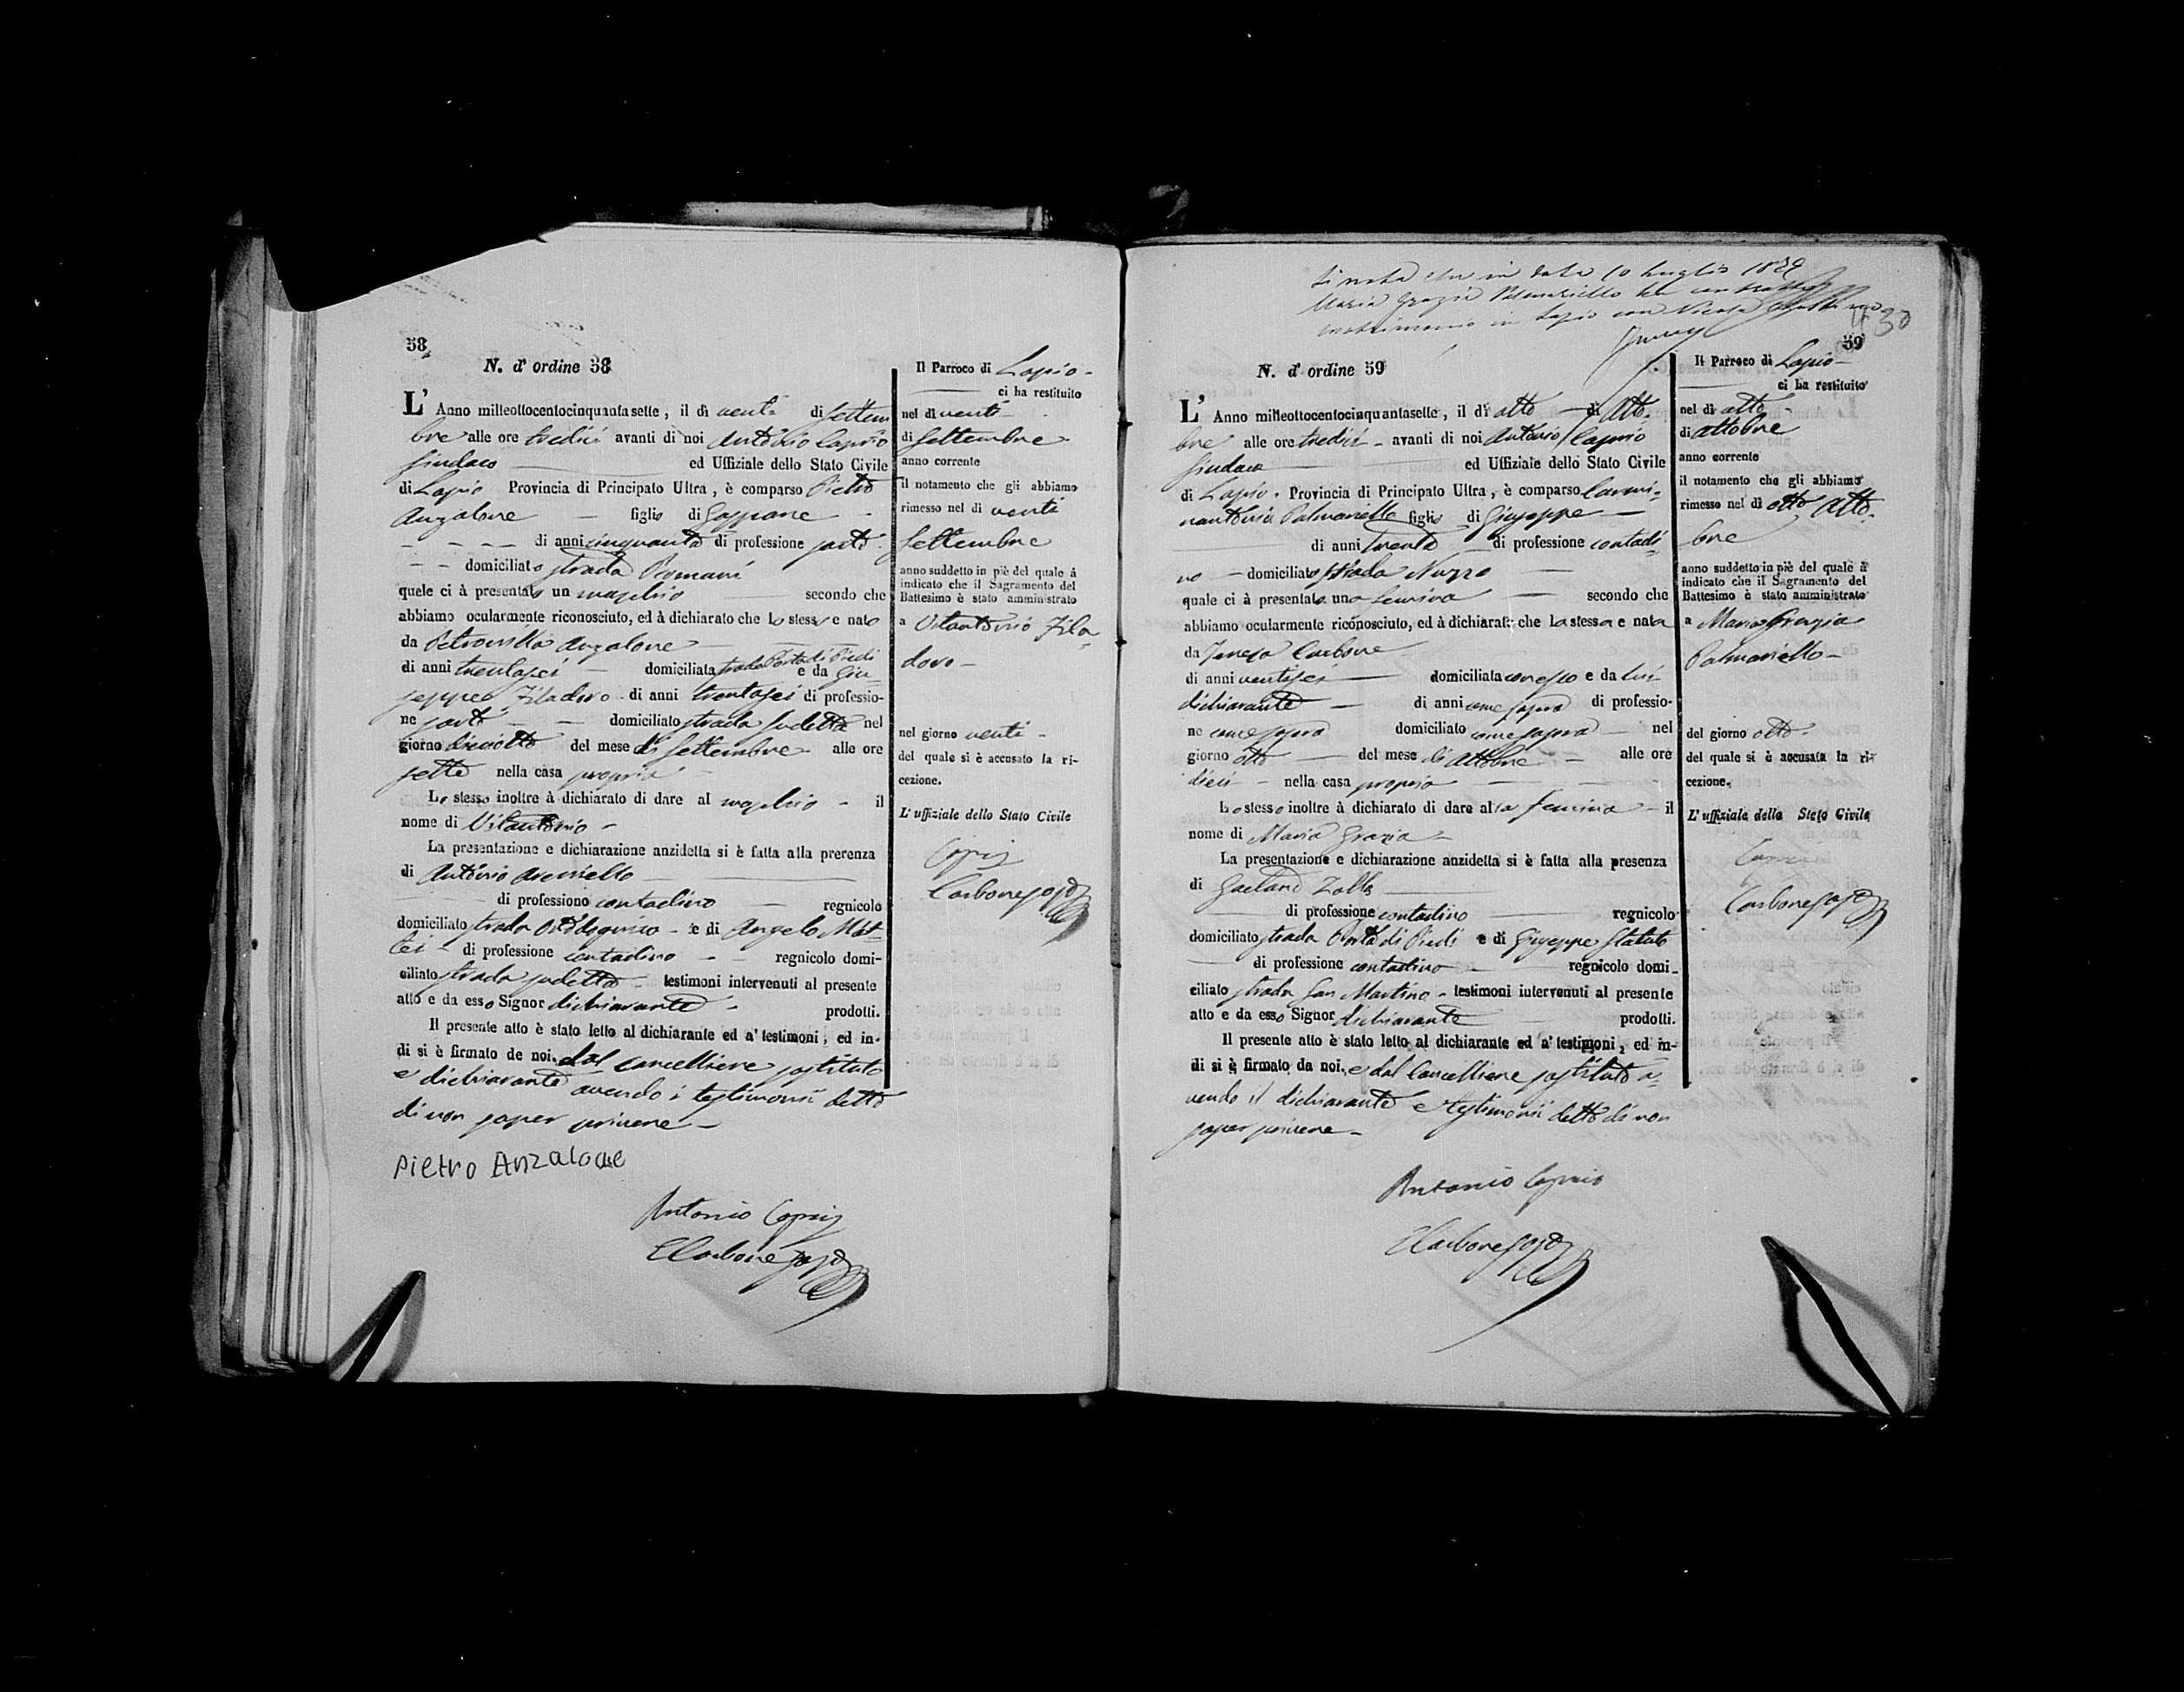 58
N. d' ordine 58
L' Anno milleottocentocinquantasette, il dì venti di Settem
bre alle ore tredici avanti di noi Antonio Caprio
Sindaco ed Uffiziale dello Stato Civile
di Lapio Provincia di Principato Ultra, è comparso Pietro
Anzalone figlio di Gaspare
di anni cinquanta di professione sarto
domiciliato strada Romani
quale ci à presentato un maschio secondo che
abbiamo ocularmente riconosciuto, ed à dichiarato che lo stesso e nato
da Petronilla Anzalone
di anni trentasei domiciliata strada Porta di Piedi e da Giu
seppe Filadoro di anni trentasei di professio-
ne sarto domiciliato strada sudetta nel
giorno diciotto del mese di Settembre alle ore
sette nella casa propria
Lo stesso inoltre à dichiarato di dare al maschio il
nome di Vitantonio
La presentazione e dichiarazione anzidetta si è fatta alla prerenza
di Antonio
di professione contadino regnicolo
domiciliato strada e di Angelo Mat-
tei di professione contadino regnicolo domi-
ciliato strada sudetta testimoni intervenuti al presente
atto e da esso Signor dichiarante prodotti.
Il presente atto è stato letto al dichiarante ed a' testimoni, ed in-
di si è firmato de noi, dal cancelliere sostituto
e dichiarante avendo i testimoni detto
di non saper scrivere
Pietro Anzalone
Antonio Caprio
Carbone sosto
Il Parroco di Lapio
ci ha restituito
nel di venti
di Settembre
anno corrente
il notamento che gli abbiamo
rimesso nel di venti
Settembre
anno suddetto in piè del quale à
indicato che il Sagramento del
Battesimo è stato amministrato
a Vitantonio Fila
doro
nel giorno venti
del quale si è accusato la ri-
cezione.
L' uffiziale dello Stato Civile
Caprio
Carbone sosto
Si nota che in data 10 Luglio
Maria Grazia Palmariello ha contratto
matrimonio in Lapio con Nicola
59
N. d' ordine 59
L' Anno milleottocentocinquantasette, il dì otto di Otto-
bre alle ore tredici avanti di noi Antonio Caprio
Sindaco ed Uffiziale dello Stato Civile
di Lapio Provincia di Principato Ultra, è comparso Carmi-
nantonio Palmariello figlio di Giuseppe
di anni trenta di professione contadi-
no domiciliato strada Nuzzo
quale ci à presentato una femina secondo che
abbiamo ocularmente riconosciuto, ed à dichiarato che la stessa e nata
da Teresa Carbone
di anni ventisei domiciliata con esso e da lui
dichiarante di anni come sopra di professio-
ne come sopra domiciliato come sopra nel
giorno otto del mese di Ottobre alle ore
dieci nella casa propria
Lo stesso inoltre à dichiarato di dare alla femina il
nome di Maria Grazia
La presentazione e dichiarazione anzidetta si è fatta alla presenza
di Gaetano Zolla
di professione contadino regnicolo
domiciliato strada Porta di Piedi e di Giuseppe Statuto
di professione contadino regnicolo domi-
ciliato strada San Martino testimoni intervenuti al presente
atto e da esso Signor dichiarante prodotti.
Il presente atto è stato letto al dichiarante ed a' testimoni, ed in-
di si è firmato da noi, e dal Cancelliere sostituto a-
vendo il dichiarante e testimoni detto di non
saper scrivere
Antonio Caprio
Carbone sosto
Il Parroco di Lapio
ci ha restituito
nel di otto
di Ottobre
anno corrente
il notamento che gli abbiamo
rimesso nel dì otto Otto-
bre
anno suddetto in piè del quale à
indicato che il Sagramento del
Battesimo è stato amministrato
a Maria Grazia
Palmariello
del giorno otto
del quale si è accusata la ri-
cezione.
L' uffiziale dello Stato Civile
Caprio
Carbone sosto